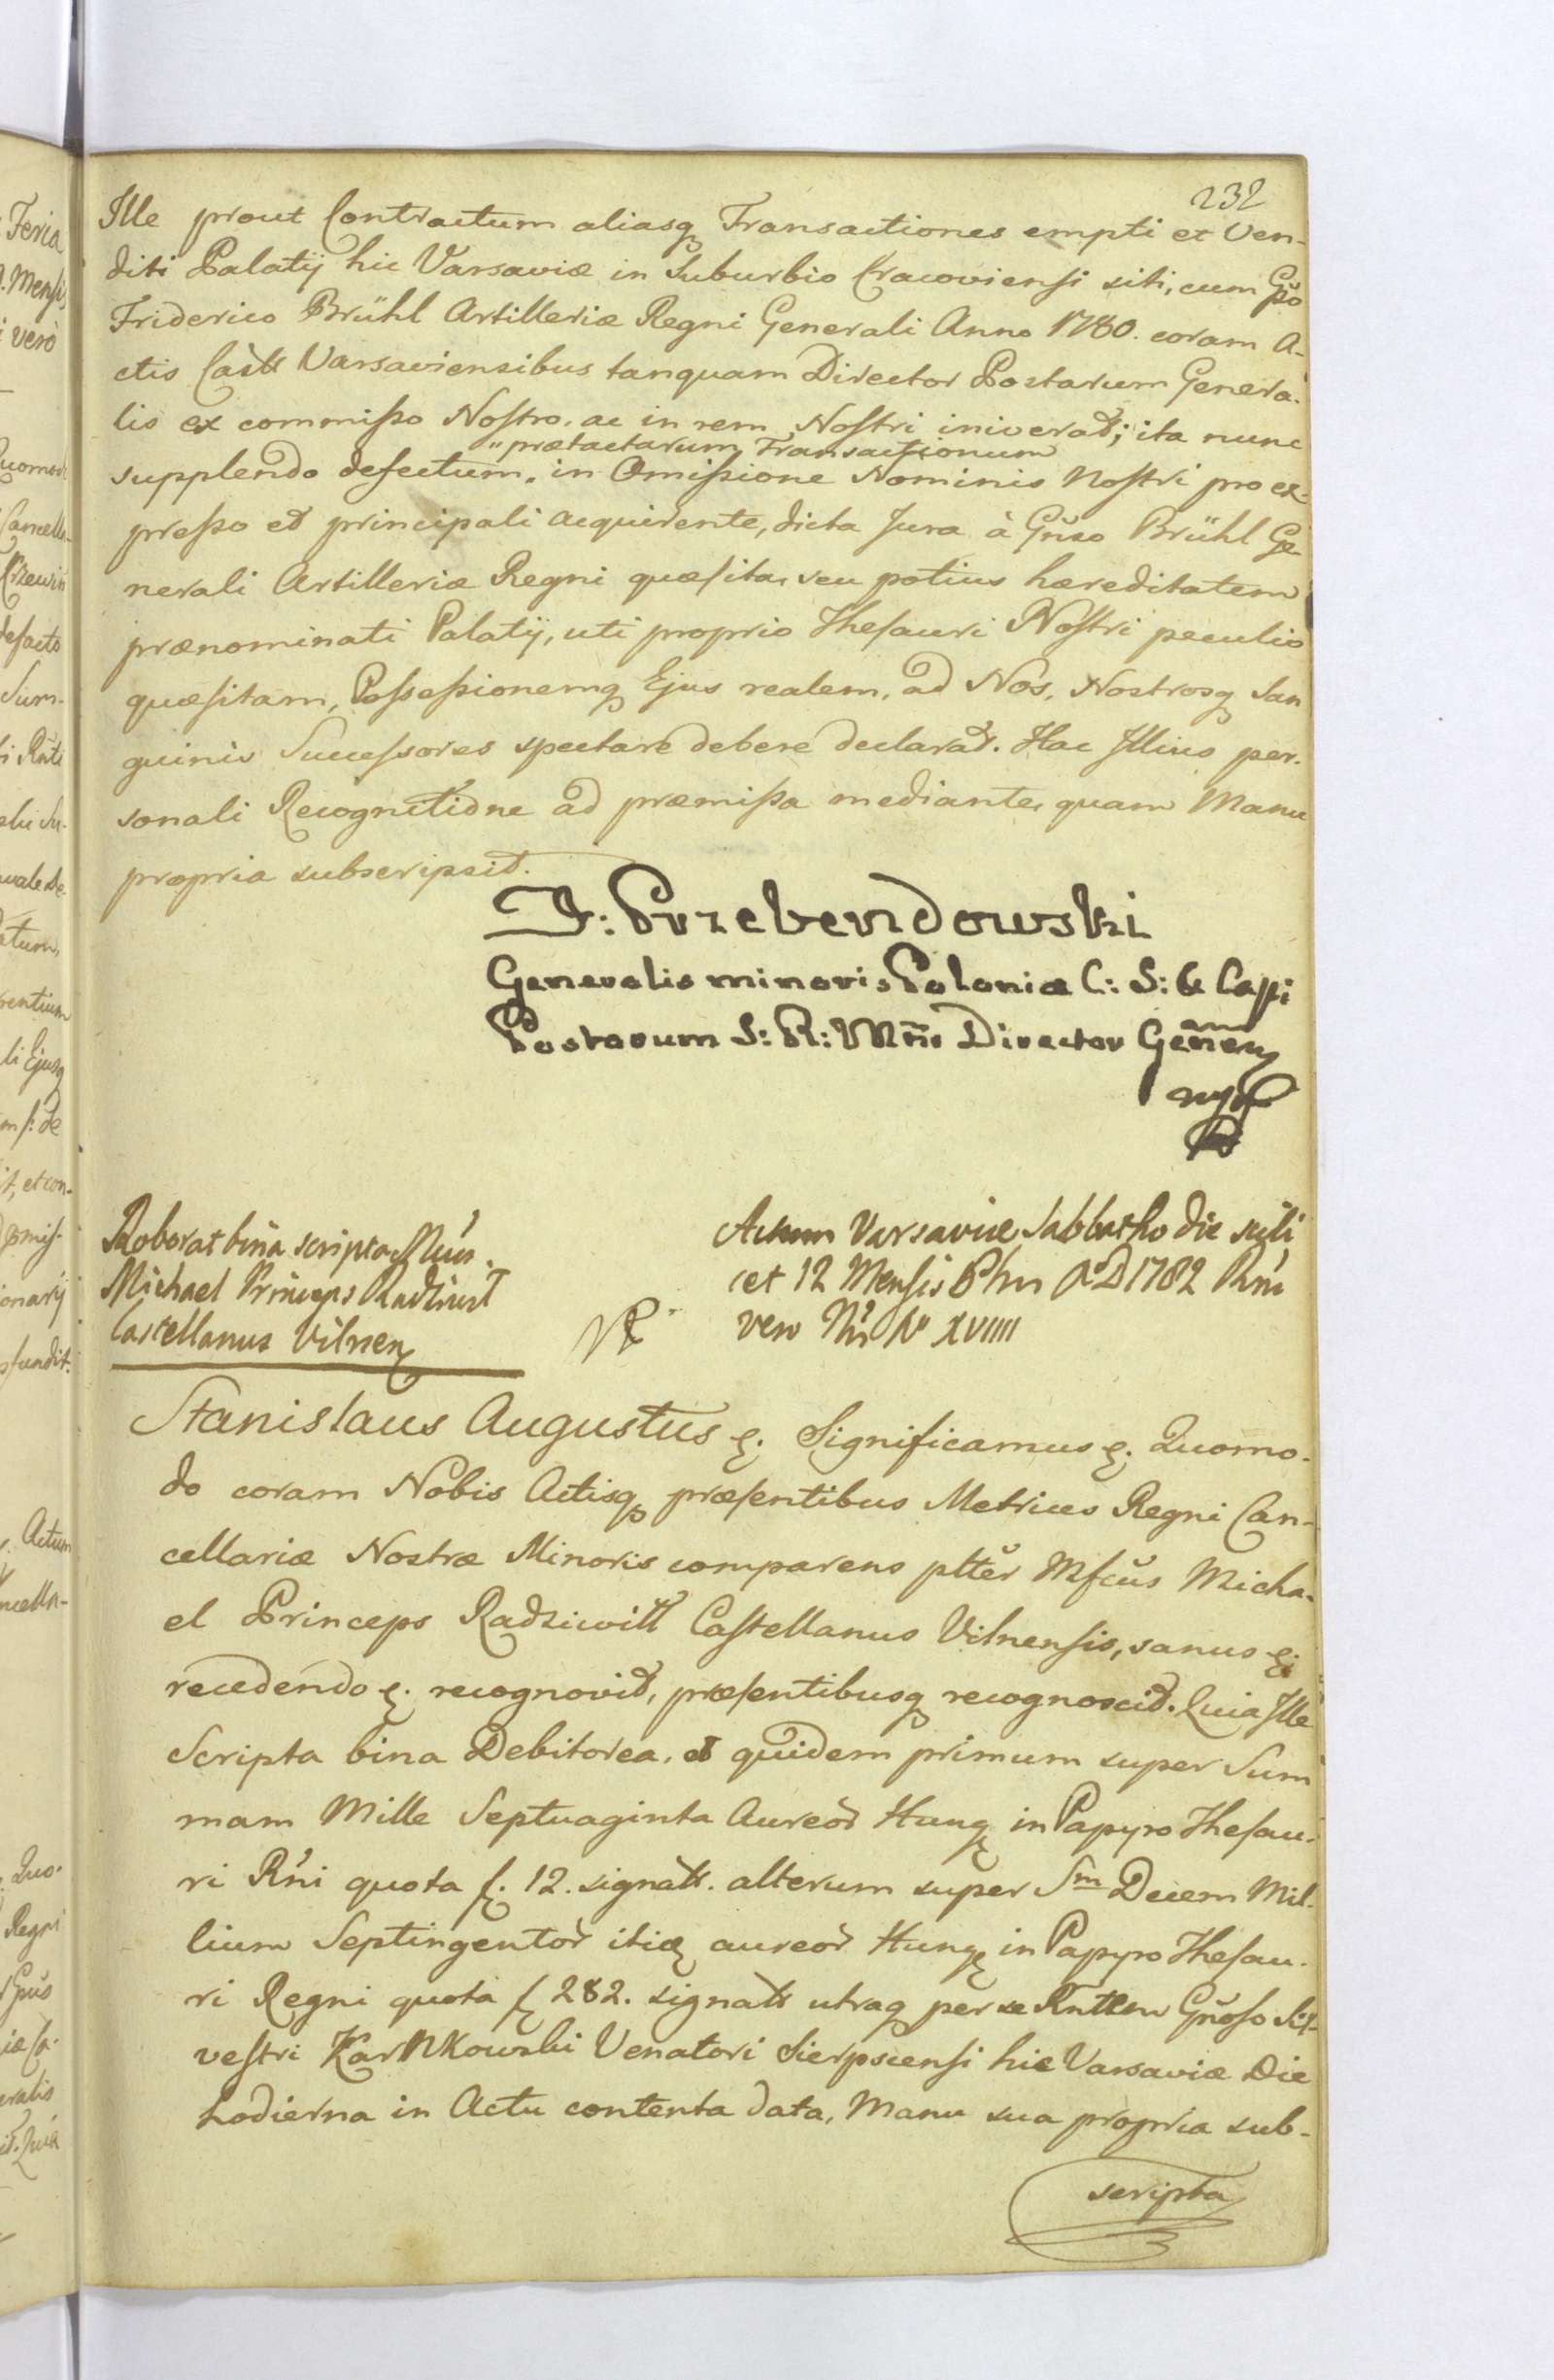 232
Ille prout Contractum aliasq Transactiones empti et Ven-
diti Palatij hic Varsaviæ in Suburbio Cracoviensi siti, cum Gso
Friderico Brühl Artilleriæ Regni Generali Anno 1780. coram A-
ctis Castr Varsaviensibus tanquam Director Postarum Genera-
lis ex commisso Nostro, ac in rem Nostri iniverat; ita nunc
"prætactarum Transactionum
supplendo defectum " in Omissione Nominis Nostri pro ex-
presso et principali acquirente, dicta Jura à Gnso Brühl Ge-
nerali Artilleriæ Regni quæsita, seu potius hæreditatem
prænominati Palatij, uti proprio Thesauri Nostri peculio
quæsitam, Possessionemq Ejus realem, ad Nos, Nostrosq San
guinis Successores spectare debere declarat. Hac Illius per-
sonali Recognitione ad præmissa mediante, quam Manu
propria subscripsit.
I: Przebendowski
Generalis minoris Poloniæ C: S: & Cappi
Postarum S: R: Mtis Director Gener
mp
Roborat bina scripta Mus.
Michael Princeps Radziwił
Castellanus Vilnen
Actum Varsaviæ Sabbatho die scili
cet 12 Mensis 8bris A D 1782 Rni
vero Nri No XVIIII
Stanislaus Augustus &. Significamus &. Quomo-
do coram Nobis Actisq præsentibus Metrices Regni Can-
cellariæ Nostræ Minoris comparens plter Mfcus Micha-
el Princeps Radziwiłł Castellanus Vilnensis, sanus &
recedendo &. recognovit, præsentibusq recognoscit. Quia Ille
Scripta bina Debitorea, et quidem primum super Sum
mam Mille Septuaginta Aureor Hung in Papyro Thesau-
ri Rni quota f. 12. signatt. alterum super Sm Decem Mil-
lium Septingentor itiq aureor Hung in Papyro Thesau-
ri Regni quota f 282. signatt utraq per se Rntem Gnoso Sil-
vestri Karnkowski Venatori Sierpscensi hic Varsaviæ Die
hodierna in Actu contenta data, Manu sua propria sub-
scripta